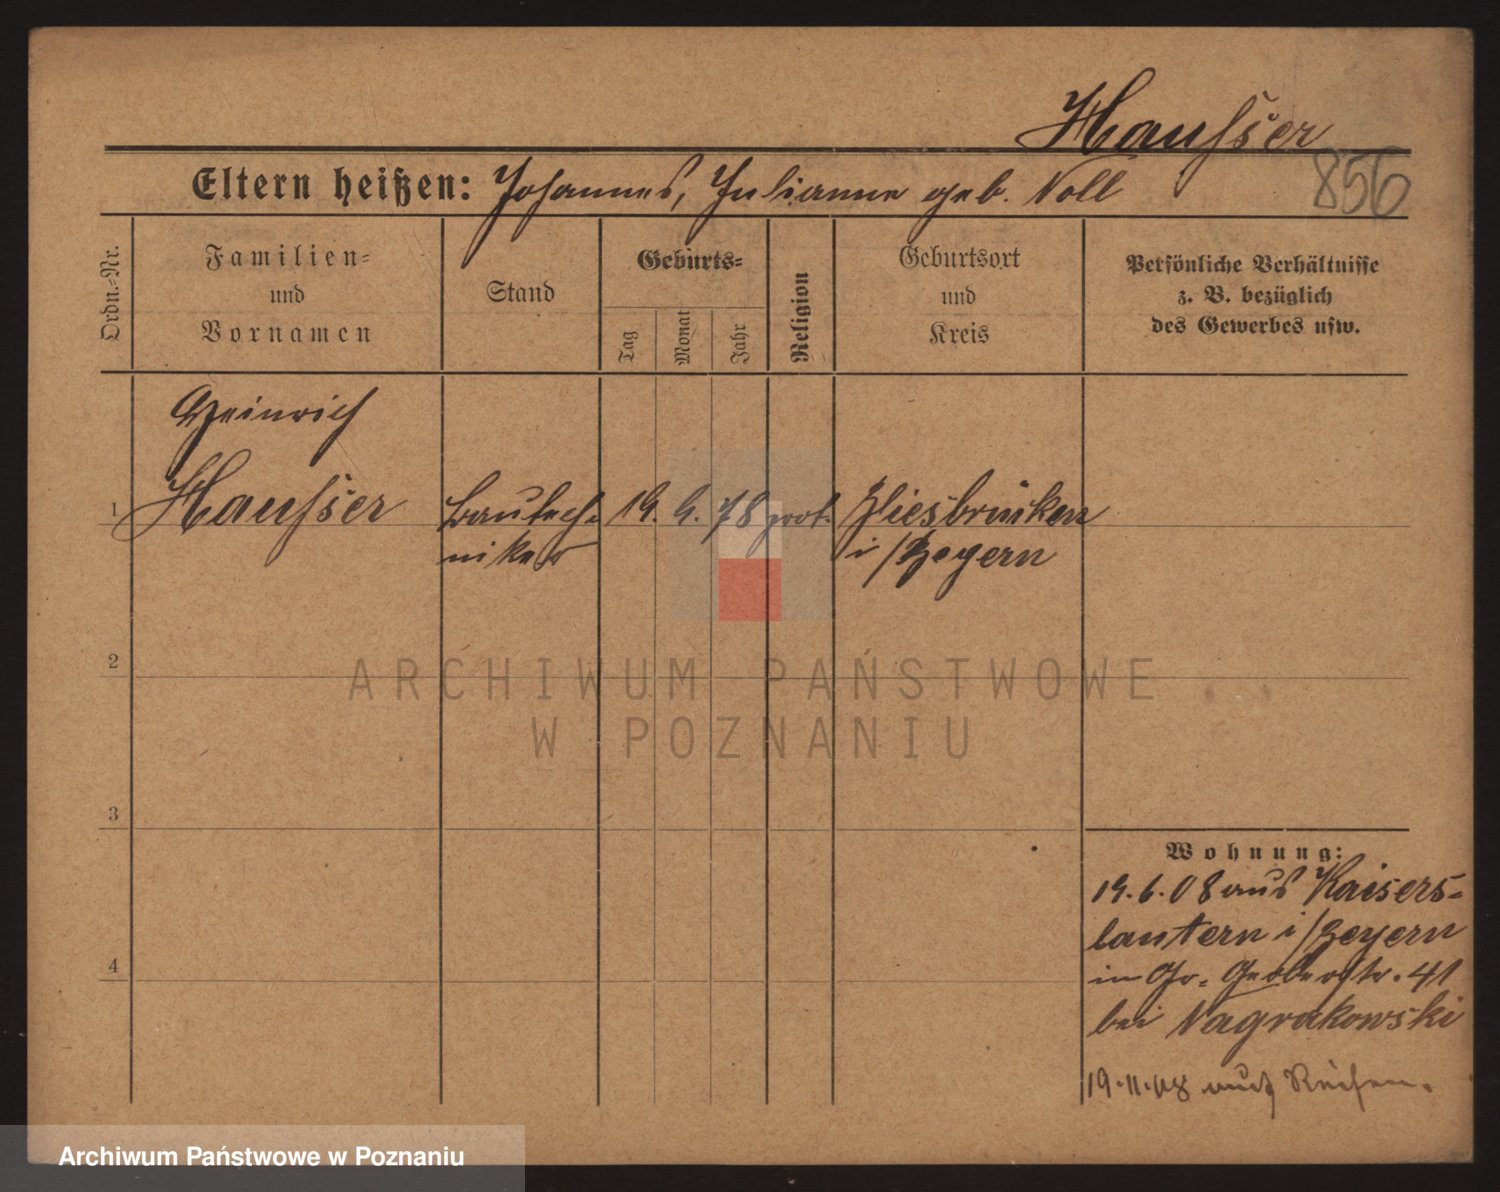 Hausser
856
Eltern heißen: Johannes, Julianne geb. Noll
Ordn.-Nr.
Familien-
und
Vornamen
Stand
Geburts-
Tag
Monat
Jahr
Religion
Geburtsort
und
Kreis
Persönliche Verhältnisse
z. B. bezüglich
des Gewerbes usw.
Heinrich
1 Hausser Bautech- 19. 9. 78 prot. Bliesbrücken
niker i/Beyern
2
3
4
Wohnung:
19.6.08 aus Kaisers-
lautern i/Beyern
in Gr. 41
bei Nagrakowski
19.11.08 auf Reisen.
ARCHIWUM PAŃSTWOWE
W POZNANIU
Archiwum Państwowe w Poznaniu